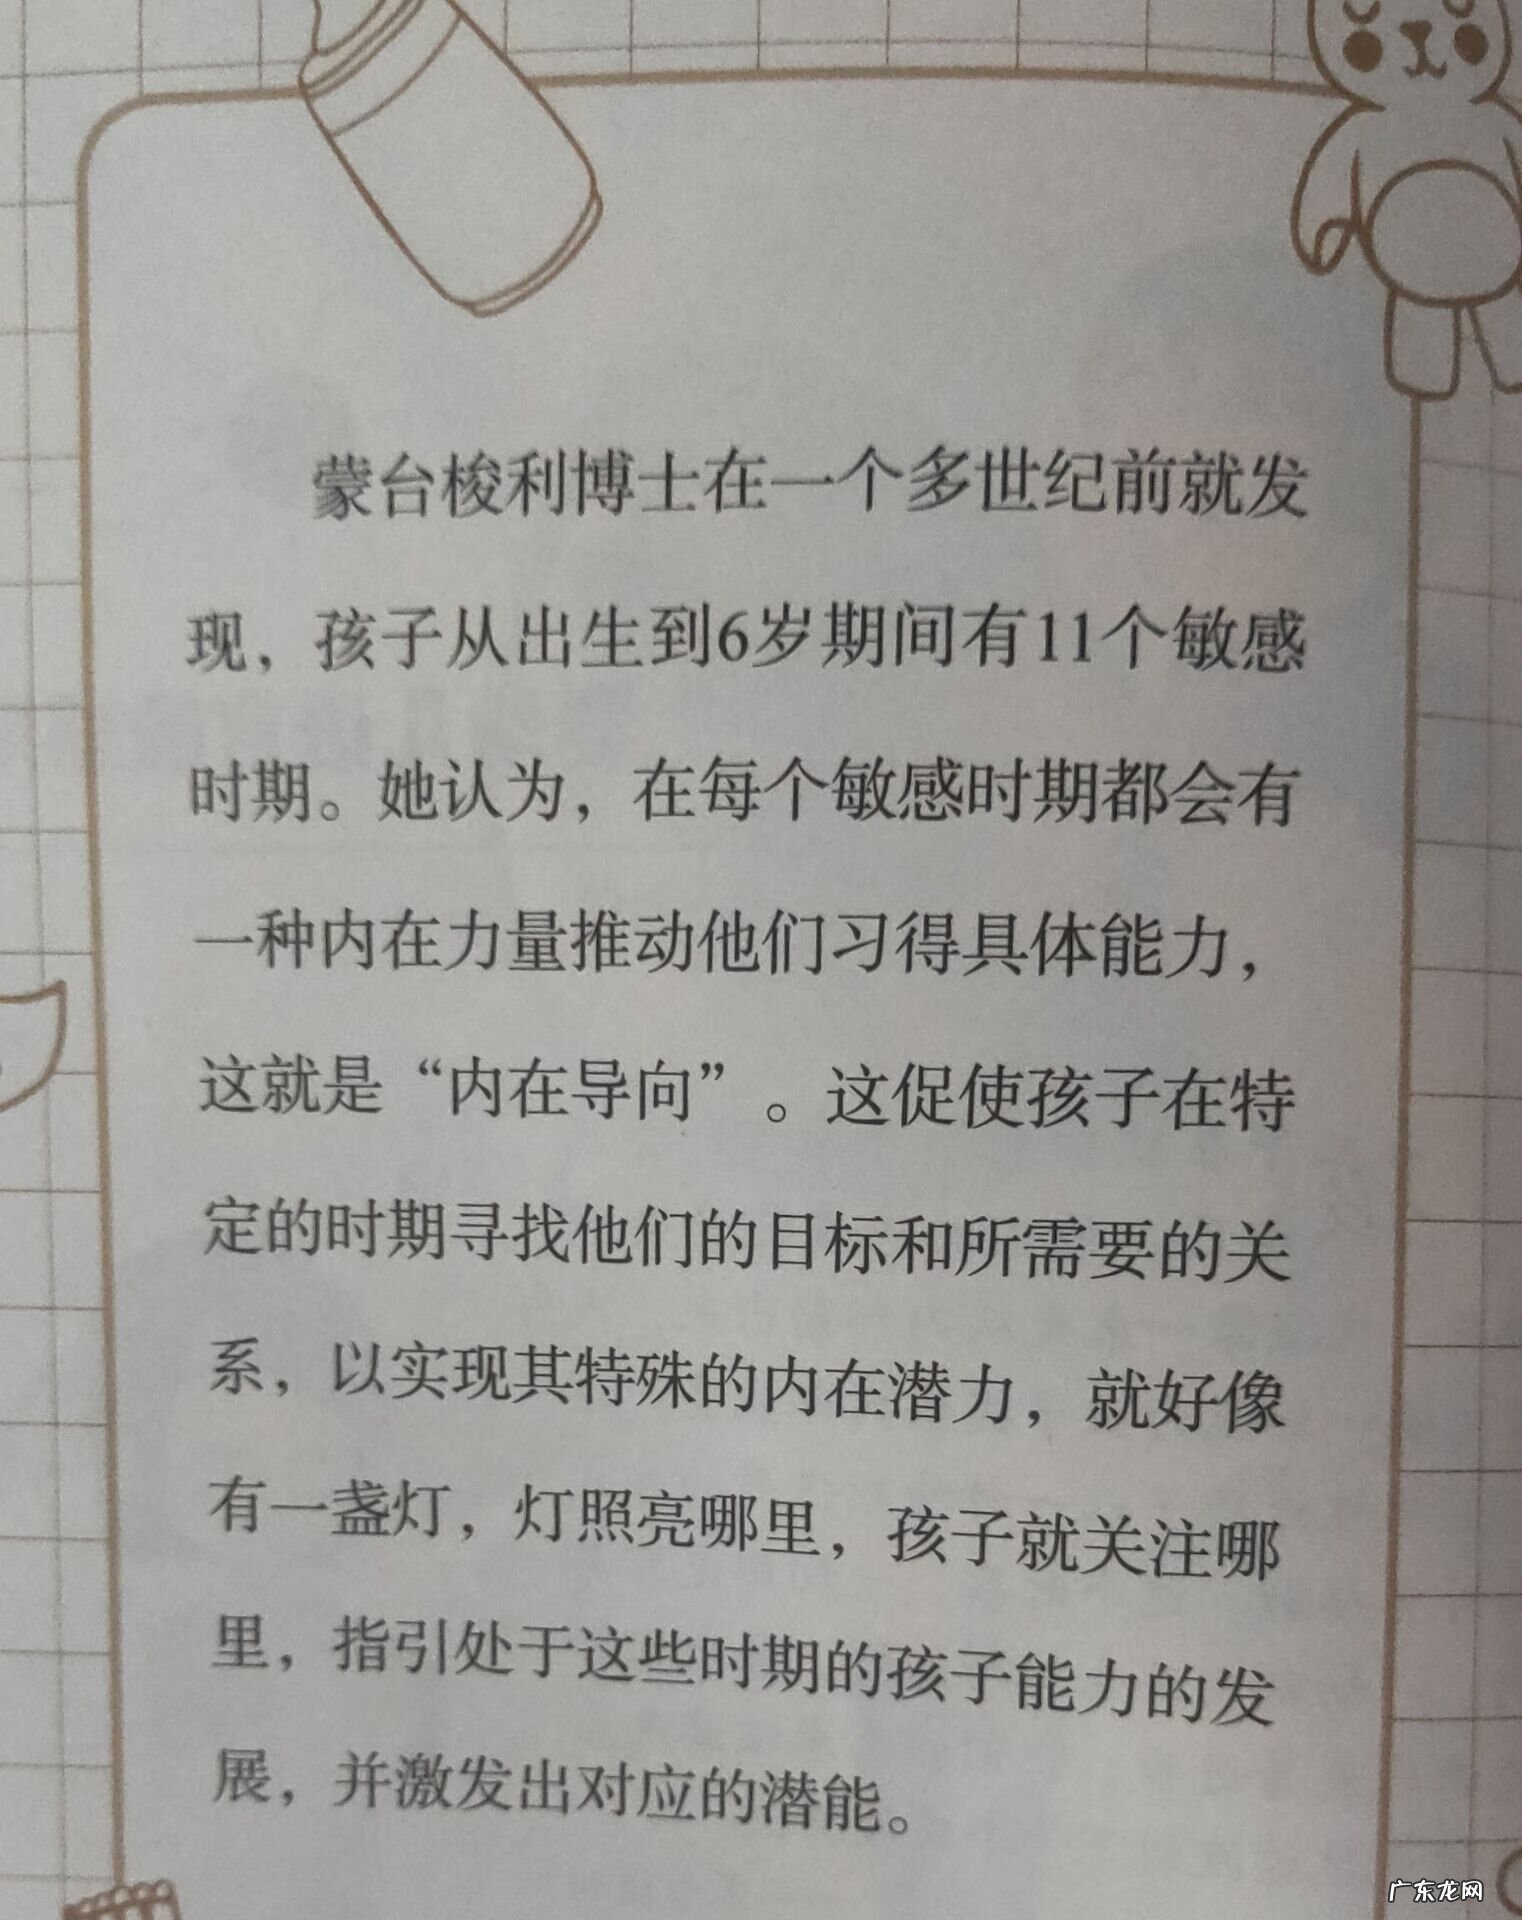 蒙台梭利博士在一个多世纪前就发
现，孩子从出生到6岁期间有11个敏感
时期。她认为，在每个敏感时期都会有
一种内在力量推动他们习得具体能力，
这就是“内在导向”。这促使孩子在特
定的时期寻找他们的目标和所需要的关
系，以实现其特殊的内在潜力，就好像
有一盏灯，灯照亮哪里，孩子就关注哪
里，指引处于这些时期的孩子能力的发
展，并激发出对应的潜能。
广东龙网